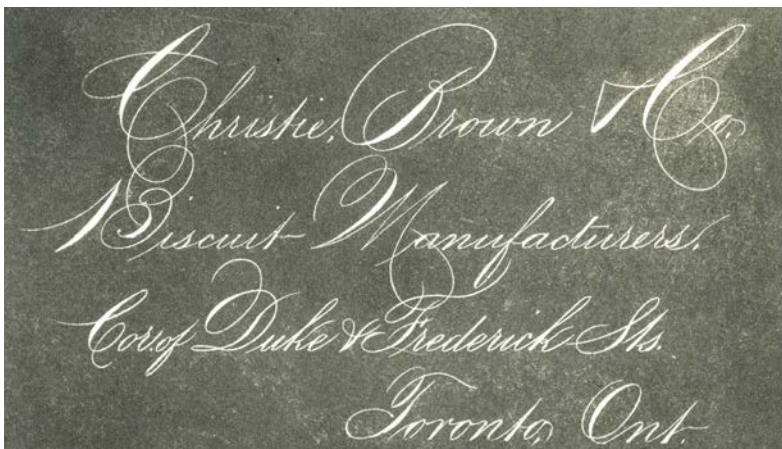 Christie, Brown & Co,
Biscuit Manufacturers,
Cor. of Duke & Frederick Sts.
Toronto, Ont.